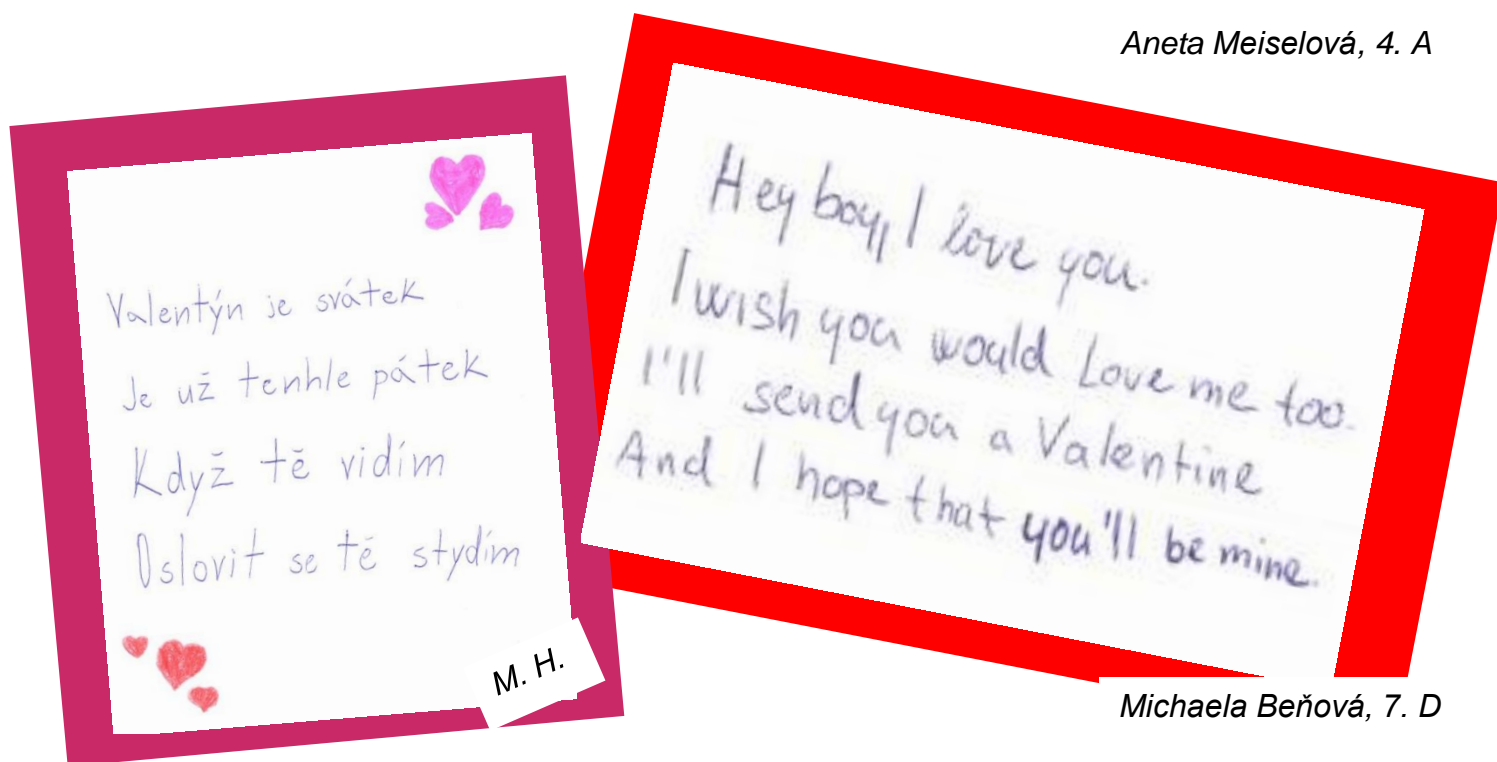 Aneta Meiselová, 4. A
Valentýn je svátek
Je už tenhle pátek
Když tě vidím
Oslovit se tě stydím
M. H.
Hey boy, I love you.
I wish you would Love me too.
I'll send you a Valentine
And I hope that you'll be mine.
Michaela Beňová, 7. D